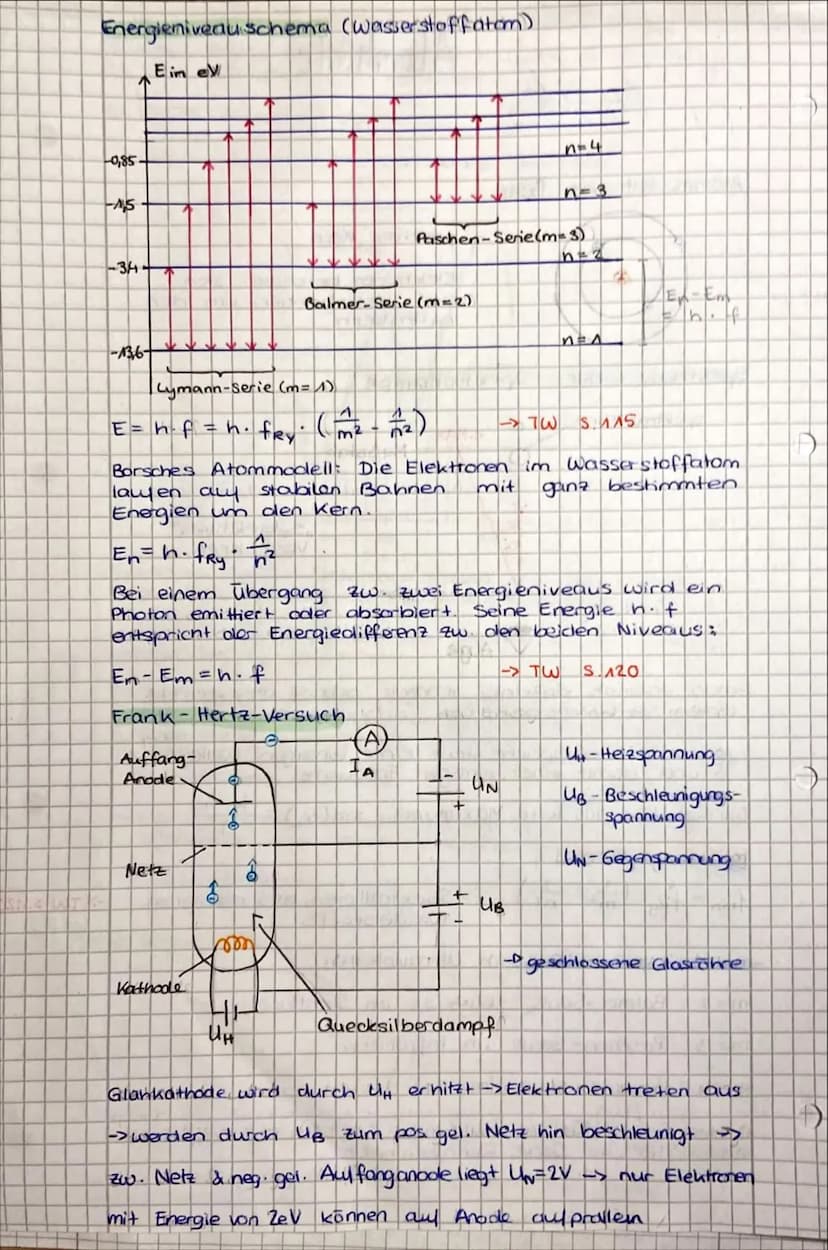 Energieniveauschema (Wasserstoffatom)
E in eV
n=4
-0,85
n=3
-1,5
Paschen-Serie (m=3)
n=2
-3,4
En-Em
= h · f
Balmer-Serie (m=2)
n=1
-13,6
Lymann-Serie (m=1)
E = h·f = h · fRy · (1/m² - 1/n²) → TW S.115
Borsches Atommodell: Die Elektronen im Wasserstoffatom
laufen auf stabilen Bahnen mit ganz bestimmten
Energien um den Kern.
En = h · fRy · 1/n²
Bei einem Übergang zw. zwei Energieniveaus wird ein
Photon emittiert oder absorbiert. Seine Energie h · f
entspricht der Energiedifferenz zw. den beiden Niveaus:
En - Em = h · f → TW S.120
Frank-Hertz-Versuch
Auffang-
Anode
A
IA
- UN
+
UH - Heizspannung
UB - Beschleunigungs-
spannung
UN - Gegenspannung
Netz
+ UB
-
→ geschlossene Glasröhre
Kathode
UH
Quecksilberdampf
Glühkathode wird durch UH erhitzt → Elektronen treten aus
→ werden durch UB zum pos. gel. Netz hin beschleunigt →
zw. Netz & neg. gel. Auffanganode liegt UN=2V → nur Elektronen
mit Energie von 2eV können auf Anode aufprallen